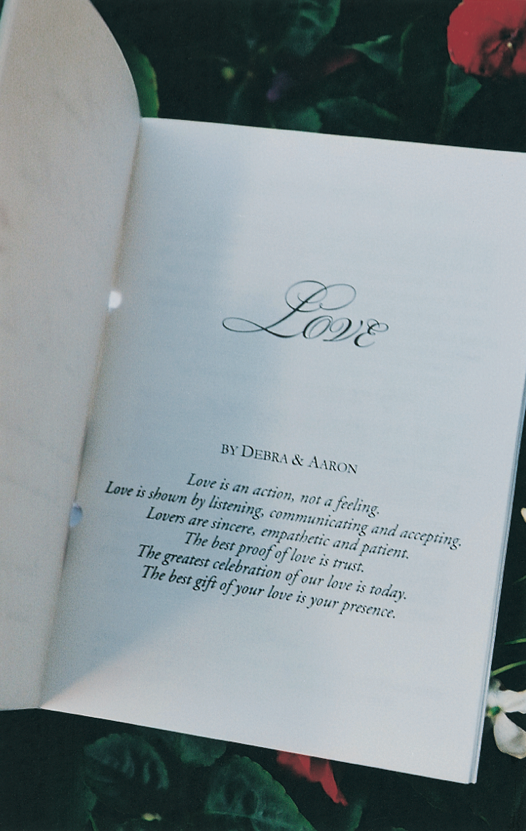 Love
BY DEBRA & AARON
Love is an action, not a feeling.
Love is shown by listening, communicating and accepting.
Lovers are sincere, empathetic and patient.
The best proof of love is trust.
The greatest celebration of our love is today.
The best gift of your love is your presence.